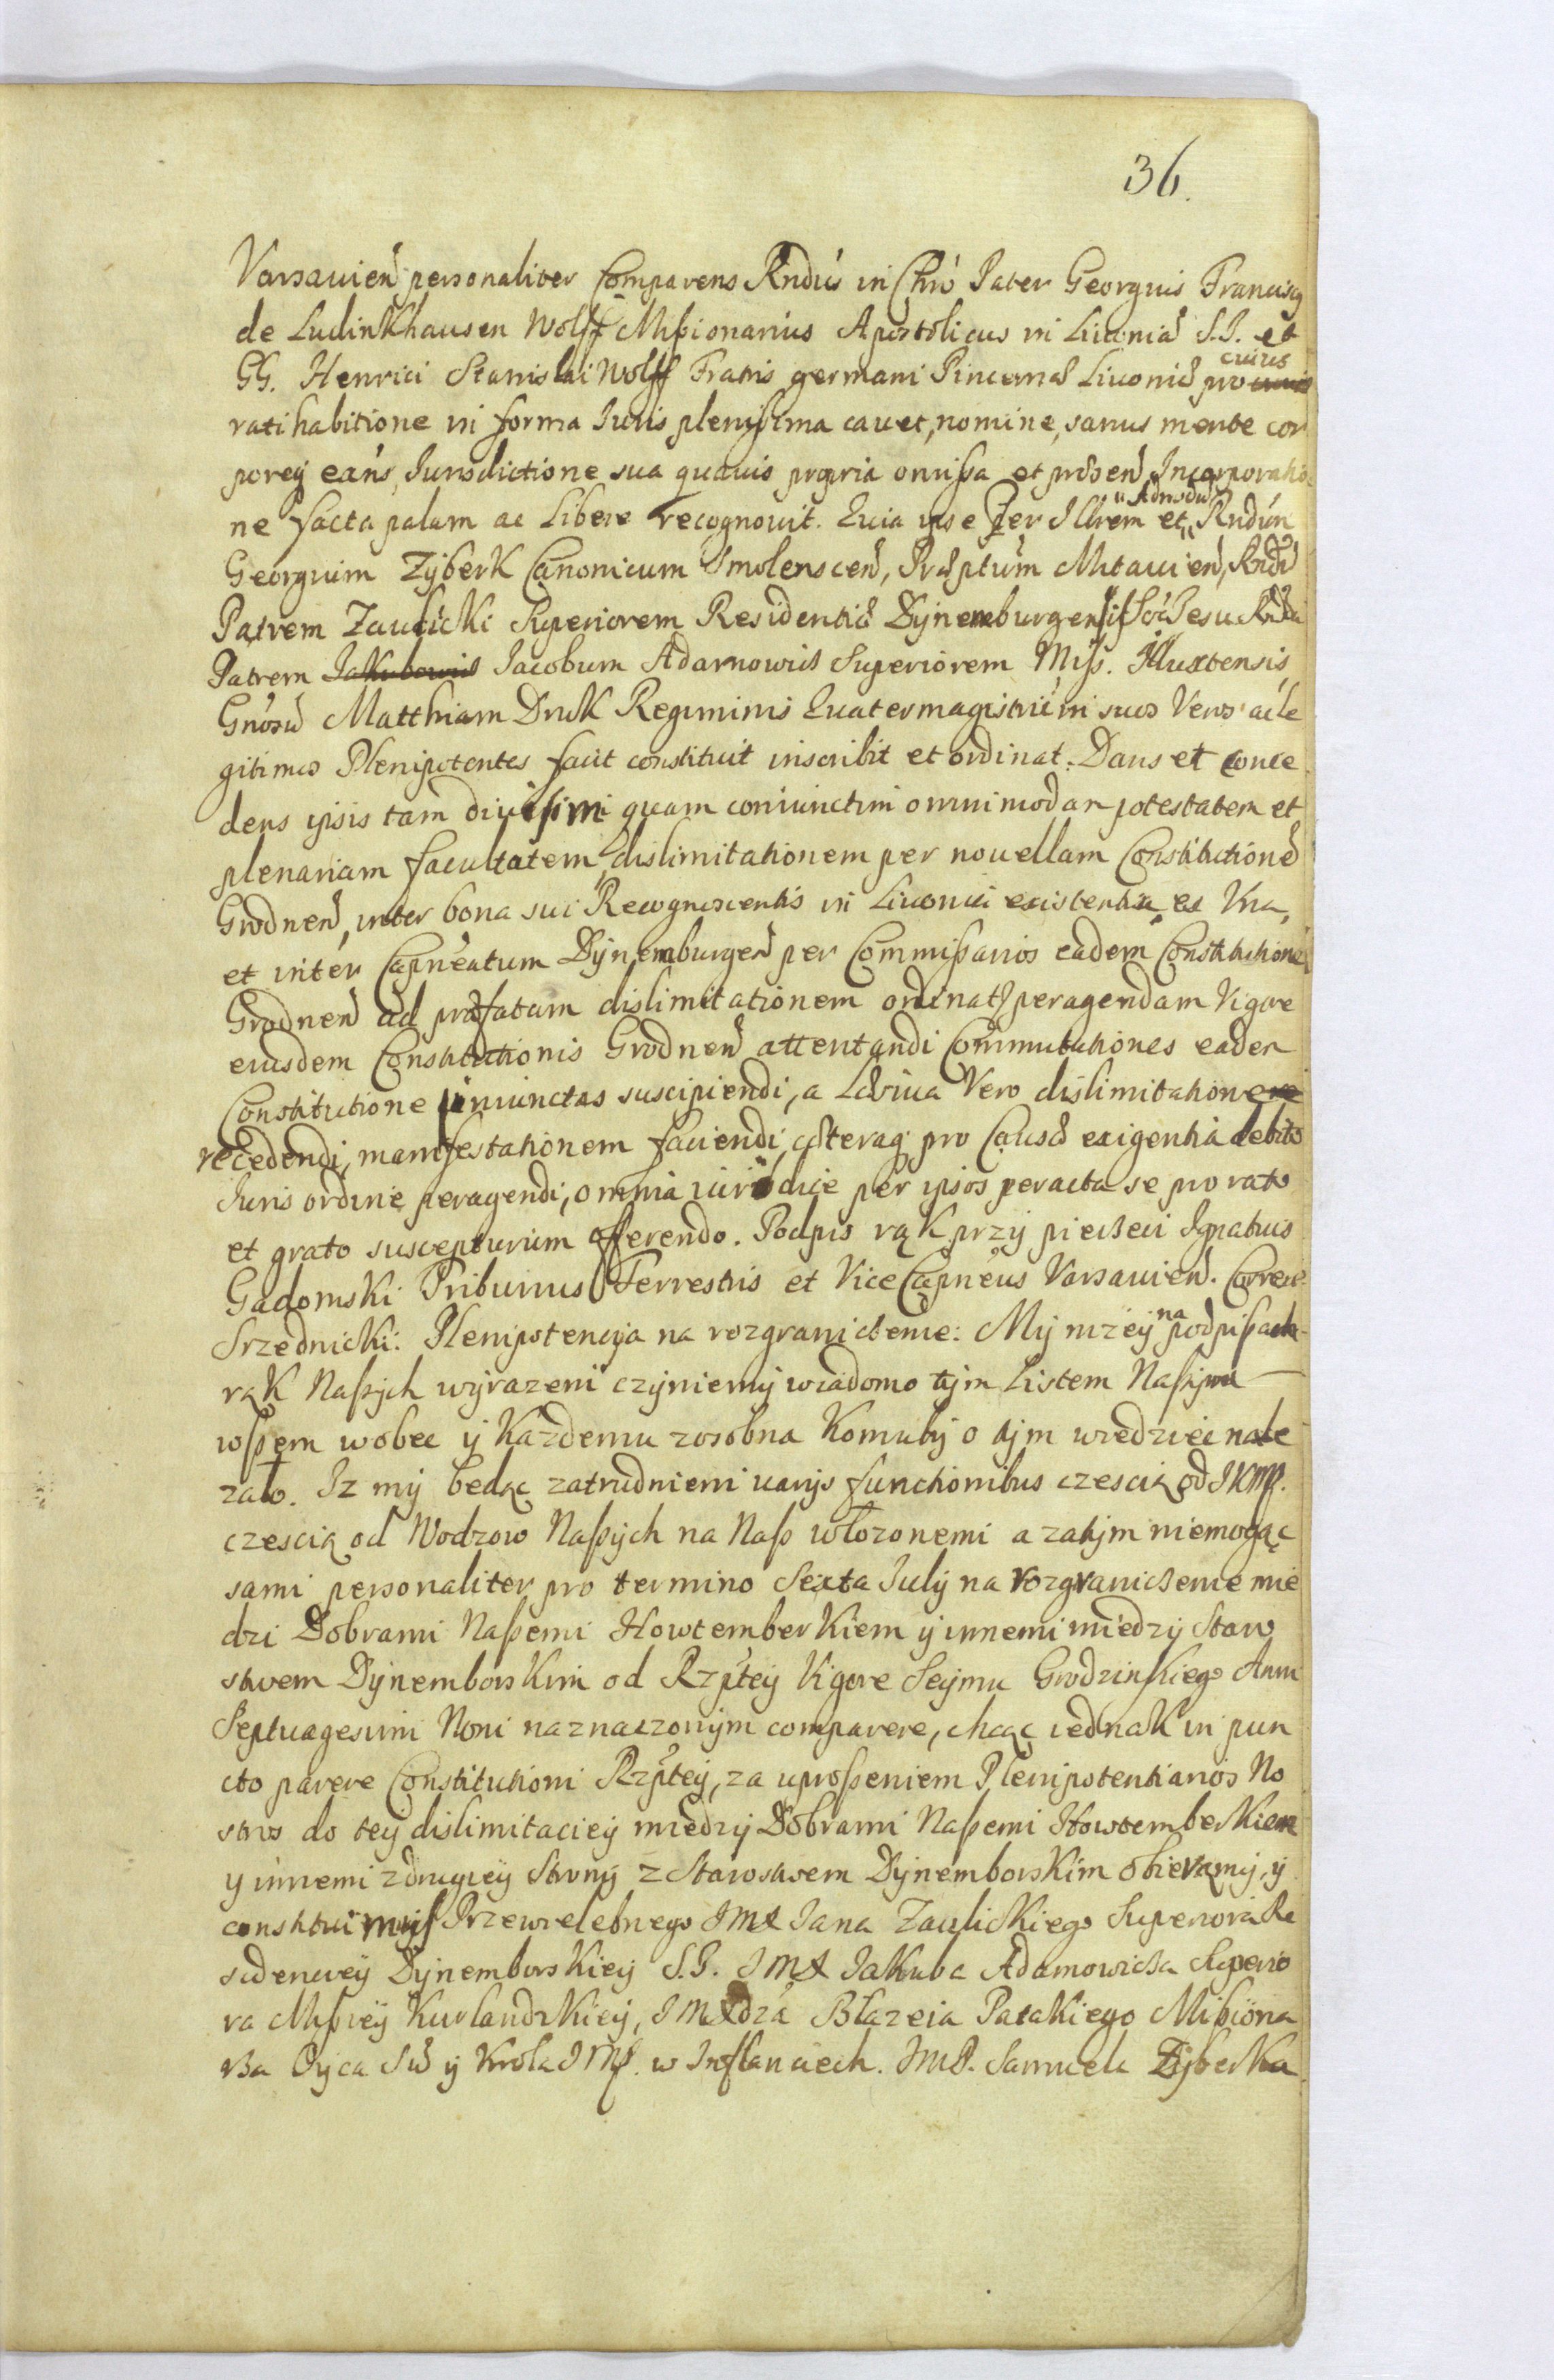 36.
Varsavien personaliter Comparens Rndus in Chro Pater Georgius Franciscg
de Ludinkhausen Wolff Missionarius Apostolicus in Livonia S.J. et
GG. Henrici Stanislai Wolff Fratris germani Pincernae Livoniae pro cuius
ratihabitione in forma Iuris plenissima cauet, nomine, sanus mente cor
poreq eans, Iurisdictione sua quauis propria omissa et praesen Incorporatio
ne facta palam ac Libere recognouit. Quia ipse Per Illrem et Admodu Rndum
Georgium Zyberk Canonicum Smolenscen, Praeptum Mitauien, Rndu
Patrem Zaulicki Superiorem Residentiae Dynemburgensis Soc Iesu Rndu
Patrem Jakubowic Jacobum Adamowicz Superiorem Miss. Illuxtensis
Gnosu Matthiam Druk Regiminis Quatermagistrum suos Veros ac le
gitimos Plenipotentes facit constituit inscribit et ordinat. Dans et conce
dens ipsis tam diuisim quam coniunctim omnimodam potestatem et
plenariam facultatem, dislimitationem per nouellam Constitutione
Grodnen, inter bona sui Recognoscentis in Liuonia existentia, ex Vna,
et inter Capneatum Dynemburgen per Commissarios eadem Constitutione
Grodnen ad praefatam dislimitationem ordinat peragendam Vigore
eiusdem Constitutionis Grodnen attentandi Commutationes eadem
Constitutione iniunctas suscipiendi, a Laesiua Vero dislimitatione
recedendi, manifestationem faciendi, caeteraq pro Causae exigentia debito
Iuris ordine peragendi, omnia iuridice per ipsos peracta se pro rato
et grato suscepturum offerendo. Podpis rąk przy pieczeci Ignatius
Gadomski Tribunus Terrestris et Vice Capneus Varsavien. Correx
Srzednicki. Plenipotencyja na rozgraniczenie: My nizey na podpisach
rąk Naszych wyrazeni czyniemy wiadomo tym Listem Naszym
wszem wobec y Kazdemu zosobna Komuby o tym wiedziec nale
zalo. Iz my będąc zatrudnieni varijs functionibus czescią od JKMs.
czescią od Wodzow Naszych na Nass włozonemi a zatym niemogąc
sami personaliter pro termino Sexta July na rozgraniczenie mie
dzi Dobrami Naszemi Howtemberkiem y innemi miedzy Staro
stwem Dynemborskim od Rzptey Vigore Seymu Grodzinskiego Anni
Septuagesimi Noni naznaczonym comparere, chcąc iednak in pun
cto parere Constitutioni Rzptey, za uproszeniem Plenipotentiarios No
stros do tey dislimitaciey miedzy Dobrami Naszemi Howtemberkiem
y innemi zdrugiey Strony z Starostwem Dynemborskim obieramy, y
constituimus Przewielebnego JMX Jana Zaulickiego Superiora Re
sidencyey Dynemborskiey S.J. JMX Jakuba Adamowicza Superio
ra Missiey Kurlandzkiey, JMXdza Blazeia Patakiego Missiona
rza Oyca S y Krola JMs. w Inflanciech. JMP. Samuela Zyberka